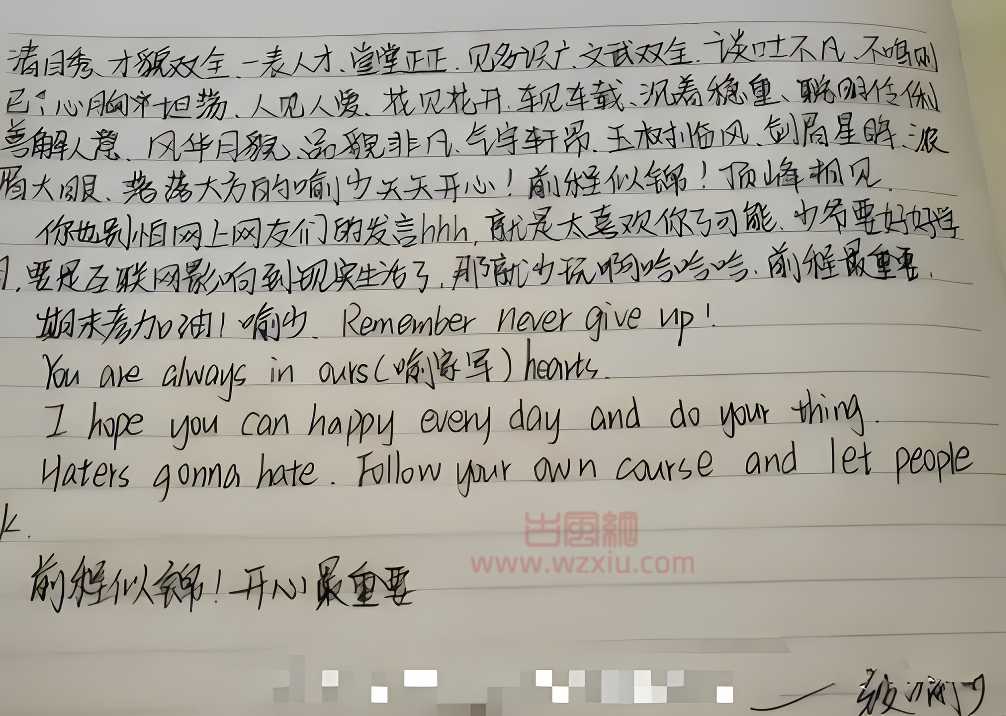 清目秀、才貌双全、一表人才、堂堂正正、见多识广、文武双全、谈吐不凡、不鸣则
已、心胸坦荡、人见人爱、花见花开、车见车载、沉着稳重、聪明伶俐
善解人意、风华月貌、品貌非凡、气宇轩昂、玉树临风、剑眉星眸、浓
眉大眼、落落大方的喻少天天开心！前程似锦！顶峰相见.
你也别怕网上网友们的发言hhh,就是太喜欢你了可能.少爷要好好学
习.要是互联网影响到现实生活了,那就少玩啊哈哈哈.前程最重要.
期末考加油！喻少. Remember never give up!
You are always in ours(喻家军) hearts.
I hope you can happy every day and do your thing.
Haters gonna hate. Follow your own course and let people
k.
出国網
www.wzxiu.com
前程似锦！开心最重要
一致喻少